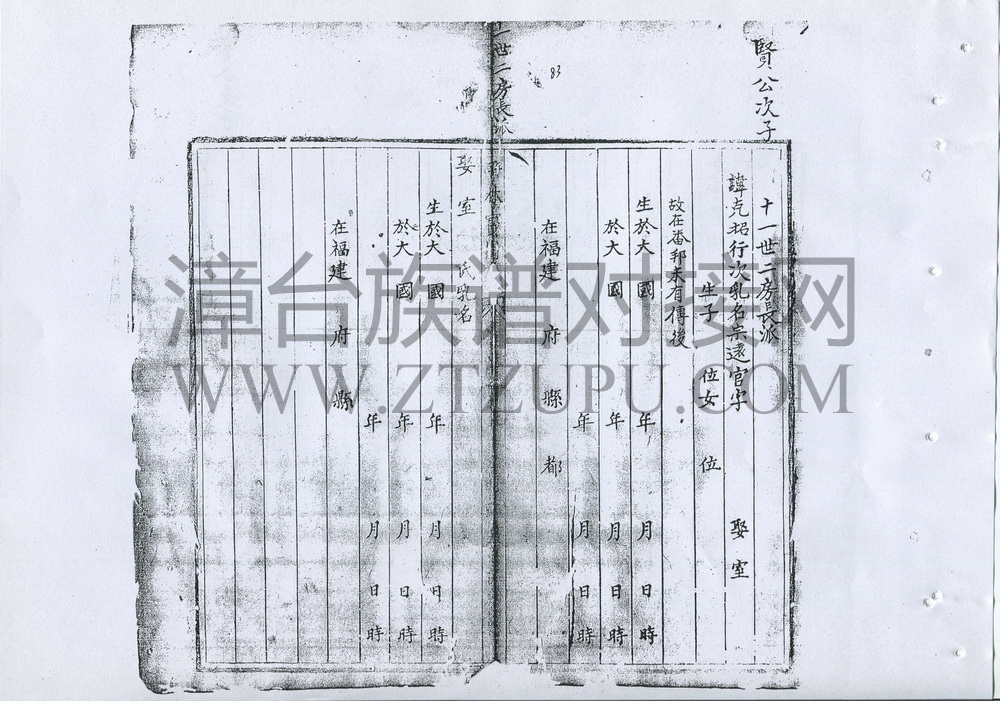 賢公次子
十一世二房長派
諱克招行次乳名宗遠官字 娶室
生子 位女 位
故在番邦未有傳後
生於大 國 年 月 日 時
於大 國 年 月 日 時
年 月 日 時
在福建 府 縣 都
十一世二房長派
83
娶室 氏乳名
生於大 國 年 月 日 時
於大 國 年 月 日 時
年 月 日 時
在福建 府 縣
漳台族谱对接网
WWW.ZTZUPU.COM